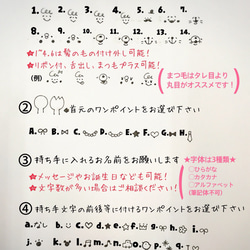 1. 2. 3. 4. 5. 6. 7.
8. 9. 10. 11. 12. 13. 14.
★1〜4、6は髪のもの付け外し可能!
★リボン付、舌出し、まつもプラス可能!
(例)
まつ毛はタレ目より
丸目がオススメです!
② ★首元のワンポイントをお選び下さい
A. B. C. D. E. F. G. H.
③ 持ち手に入れるお名前をお願いします
★メッセージやお誕生日なども可能!
★文字数が多い場合はご相談ください!
★字体は3種類★
○ひらがな
○カタカナ
○アルファベット
(筆記体不可)
④ 持ち手文字の前後等に付けるワンポイントをお選び下さい
a.なし b. c. d. e. f. g. h. i.
j. k. l. m. n. o. p.